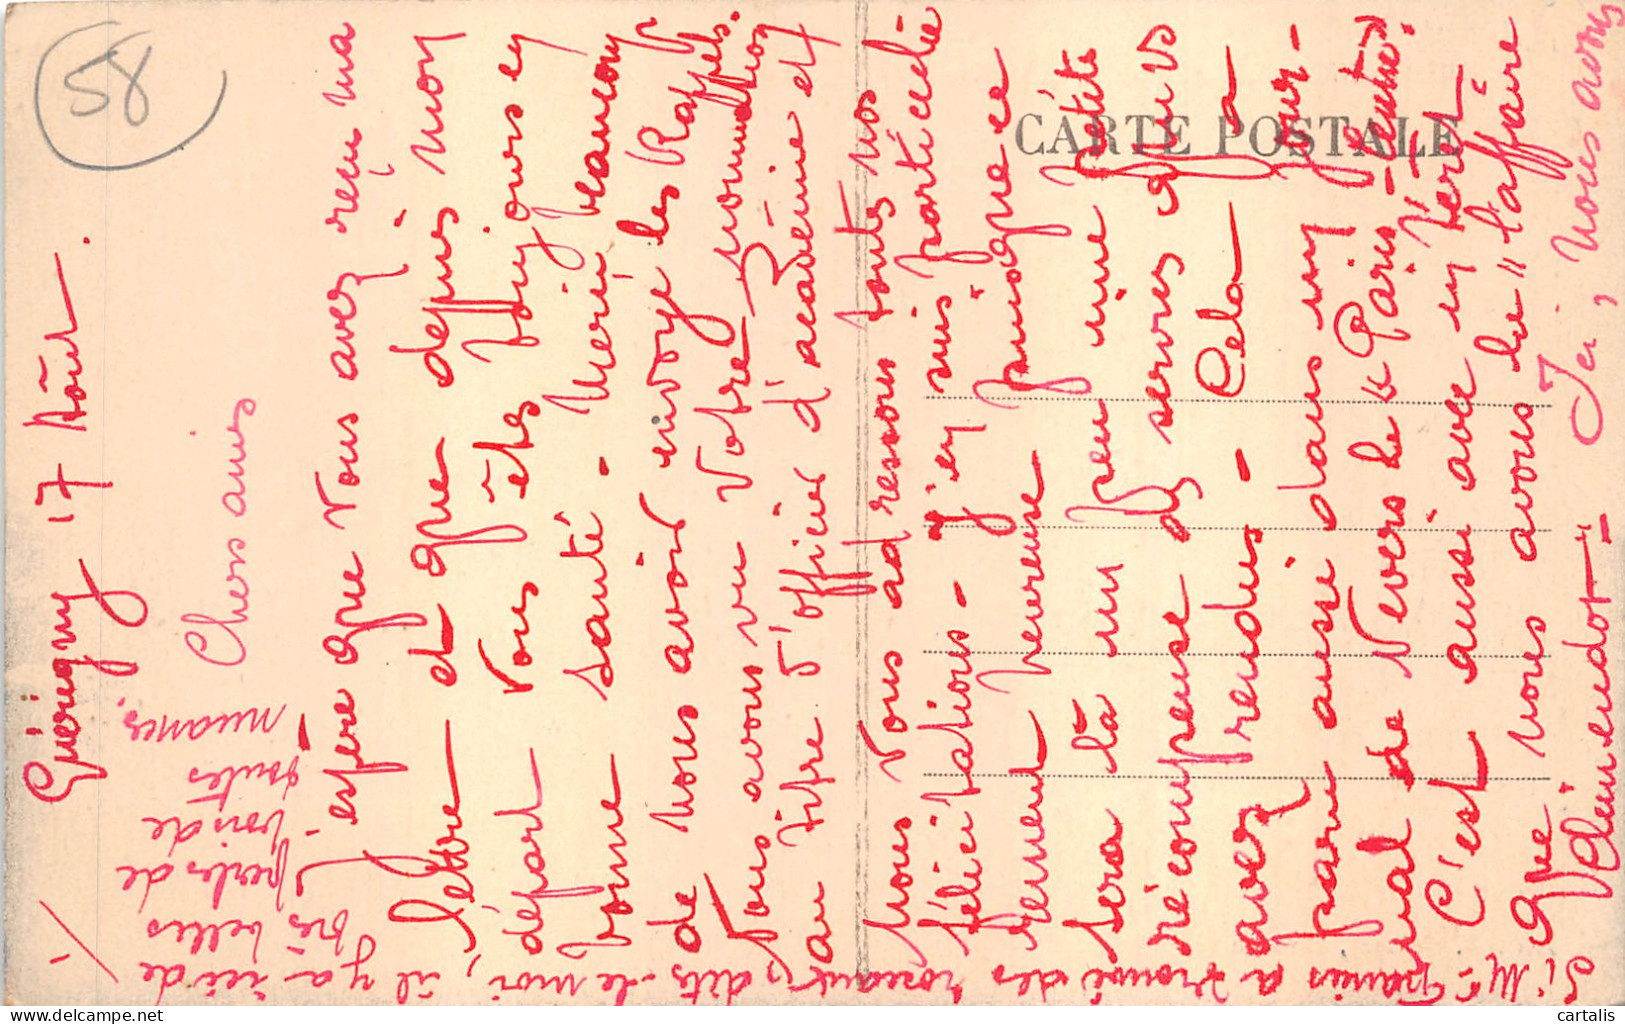 58
CARTE POSTALE
Guérigny 17 Août.
Chers amis
J'espère que vous avez reçu ma
lettre et que depuis mon
départ vous êtes toujours en
bonne santé - Merci beaucoup
de nous avoir envoyé les Rappels.
Nous avons vu votre nomination
au titre d'officier d'académie et
nous vous adressons toutes nos
félicitations - J'en suis particuliè
rement heureuse puisque ce
sera là un peu une petite
récompense des services que vs
avez rendus - Cela a
paru aussi dans un jour-
nal de Nevers le "Paris-Centre".
C'est aussi avec intérêt
que nous avons lu "l'affaire
Ici, nous avons
Si Mr Francis a trouvé des roseaux, dites-le moi, il y a ici de
très belles
perles de
bois de
toutes
nuances.
cartalis